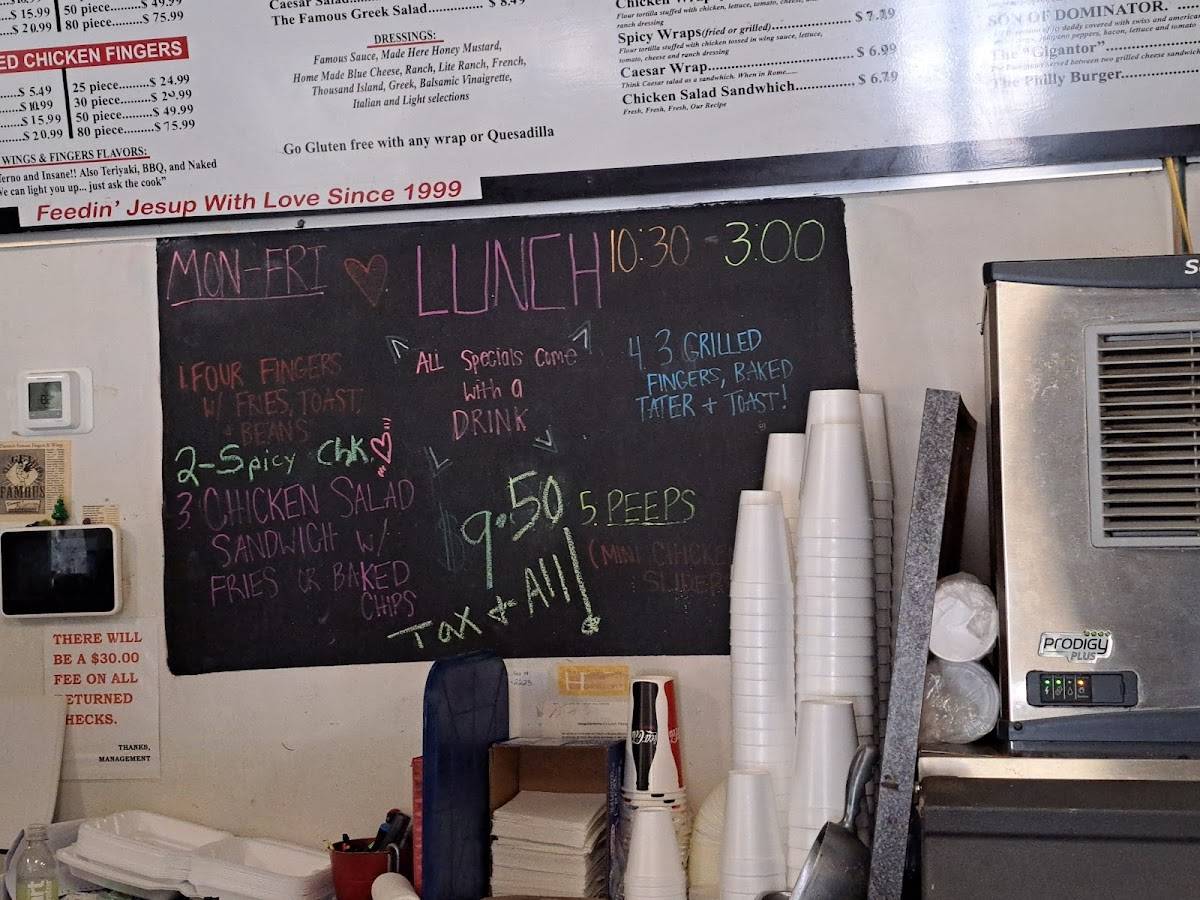 $ 15.99
$ 20.99
50 piece........$ 49.99
80 piece........$ 75.99
ED CHICKEN FINGERS
$ 5.49
$ 10.99
$ 15.99
$ 20.99
25 piece........$ 24.99
30 piece........$ 29.99
50 piece........$ 49.99
80 piece........$ 75.99
WINGS & FINGERS FLAVORS:
erno and Insane!! Also Teriyaki, BBQ, and Naked
e can light you up... just ask the cook"
Feedin' Jesup With Love Since 1999
Caesar Salad
The Famous Greek Salad.................... $ 8.49
DRESSINGS:
Famous Sauce, Made Here Honey Mustard,
Home Made Blue Cheese, Ranch, Lite Ranch, French,
Thousand Island, Greek, Balsamic Vinaigrette,
Italian and Light selections
Go Gluten free with any wrap or Quesadilla
Flour tortilla stuffed with chicken, lettuce, tomato, cheese, and
ranch dressing
Spicy Wraps(fried or grilled)............... $ 7.29
Flour tortilla stuffed with chicken tossed in wing sauce, lettuce,
tomato, cheese and ranch dressing
Caesar Wrap.................................... $ 6.99
Think Caesar salad as a sandwich. When in Rome......
Chicken Salad Sandwich............. $ 6.79
Fresh, Fresh, Fresh, Our Recipe
SON OF DOMINATOR.
covered with swiss and america
peppers, bacon, lettuce and tomato
The "Gigantor"
served between two grilled cheese sandwich
The Philly Burger
MON-FRI
LUNCH
10:30 - 3:00
1. FOUR FINGERS
W/ FRIES, TOAST,
+ BEANS
2-Spicy Chk.
3 CHICKEN SALAD
SANDWICH W/
FRIES OR BAKED
CHIPS
ALL Specials Come
With a
DRINK
$ 9.50
Tax + All!
4. 3 GRILLED
FINGERS, BAKED
TATER + TOAST!
5. PEEPS
(MINI CHICKE
SLIDER
FAMOUS
THERE WILL
BE A $30.00
FEE ON ALL
ETURNED
HECKS.
THANKS,
MANAGEMENT
Coca-Cola
PRODIGY
PLUS
S